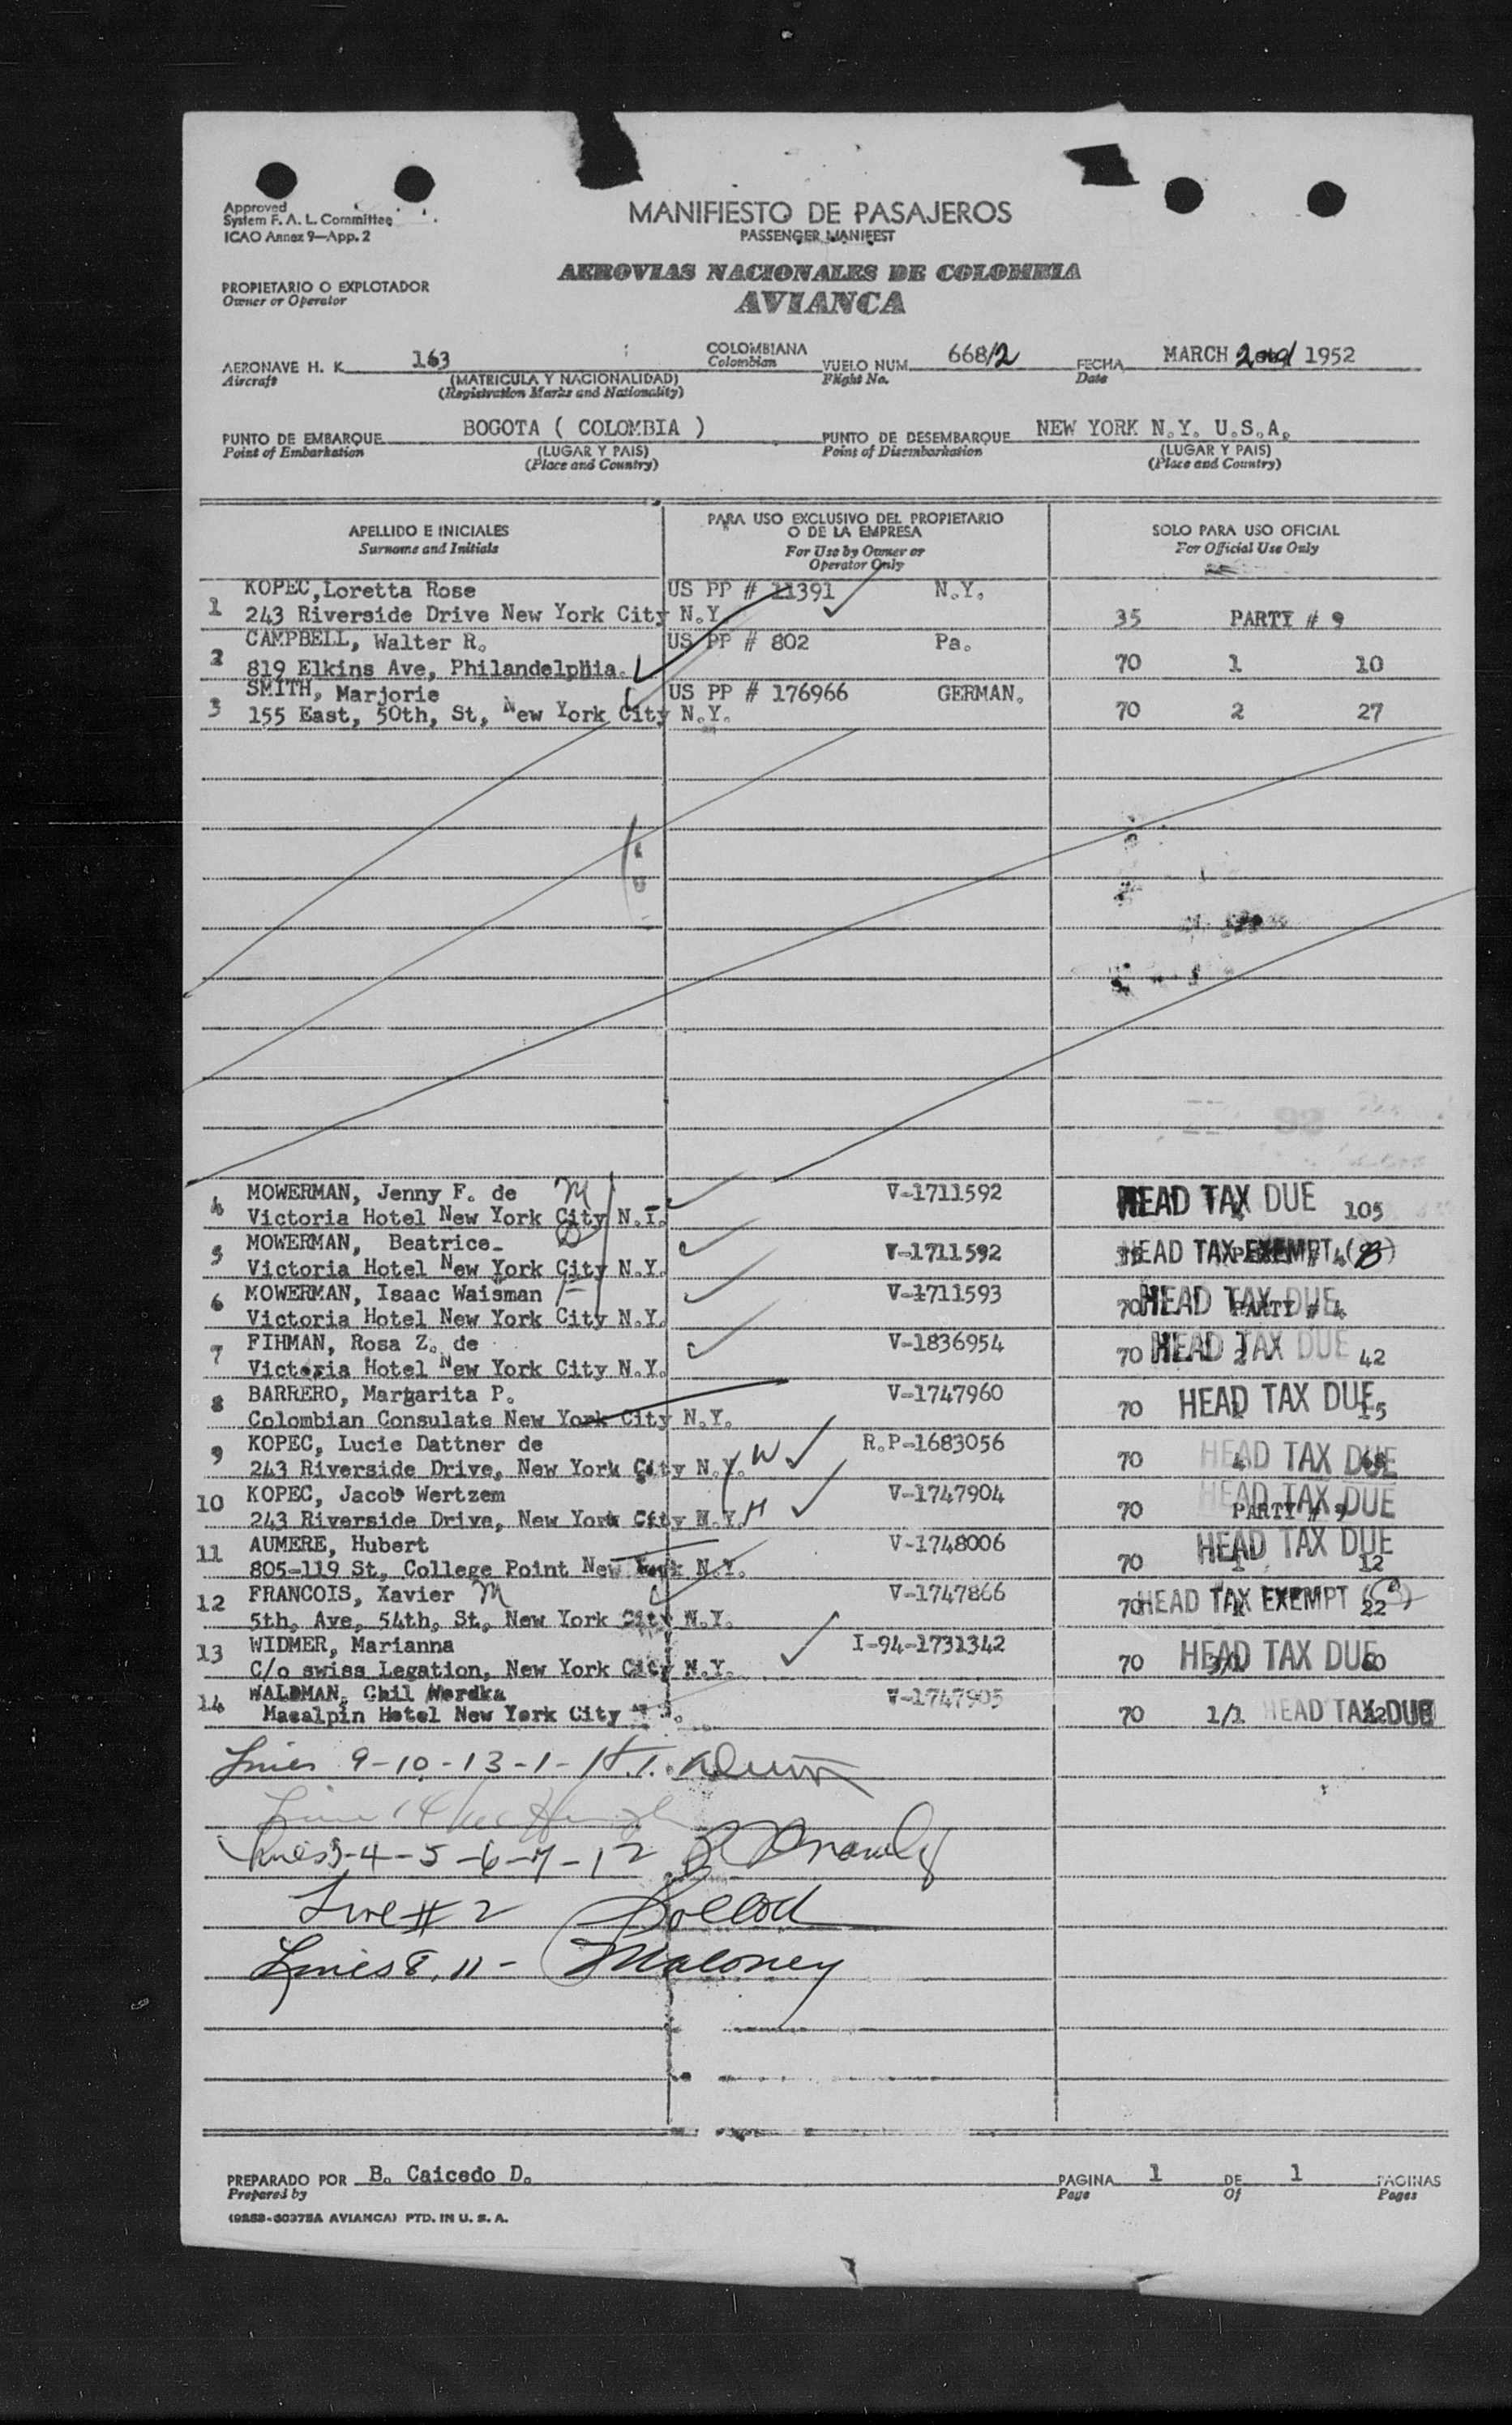 Approved
System F. A. L. Committee
ICAO Annex 9—App. 2
MANIFIESTO DE PASAJEROS
PASSENGER MANIFEST
PROPIETARIO O EXPLOTADOR
Owner or Operator
AEROVIAS NACIONALES DE COLOMBIA
AVIANCA
AERONAVE H. K. 163
Aircraft
(MATRICULA Y NACIONALIDAD)
(Registration Marks and Nationality)
COLOMBIANA
Colombian
VUELO NUM. 668/2
Flight No.
FECHA MARCH 2nd 1952
Date
PUNTO DE EMBARQUE BOGOTA ( COLOMBIA )
Point of Embarkation
(LUGAR Y PAIS)
(Place and Country)
PUNTO DE DESEMBARQUE NEW YORK N.Y. U.S.A.
Point of Disembarkation
(LUGAR Y PAIS)
(Place and Country)
APELLIDO E INICIALES
Surname and Initials
PARA USO EXCLUSIVO DEL PROPIETARIO
O DE LA EMPRESA
For Use by Owner or
Operator Only
SOLO PARA USO OFICIAL
For Official Use Only
KOPEC,Loretta Rose US PP # 11391 N.Y.
1 243 Riverside Drive New York City N.Y. 35 PARTY # 9
CAMPBELL, Walter R. US PP # 802 Pa.
2 819 Elkins Ave, Philandelphia. 70 1 10
SMITH, Marjorie US PP # 176966 GERMAN.
3 155 East, 50th, St, New York City N.Y. 70 2 27
4 MOWERMAN, Jenny F. de M V-1711592 HEAD TAX DUE 105
Victoria Hotel New York City N.Y.
5 MOWERMAN, Beatrice- V-1711592 HEAD TAX EXEMPT (B)
Victoria Hotel New York City N.Y.
6 MOWERMAN, Isaac Waisman V-1711593 70 HEAD TAX DUE PARTY # 4
Victoria Hotel New York City N.Y.
7 FIHMAN, Rosa Z. de V-1836954 70 2 HEAD TAX DUE 42
Victoria Hotel New York City N.Y.
8 BARRERO, Margarita P. V-1747960 70 HEAD TAX DUE
Colombian Consulate New York City N.Y.
9 KOPEC, Lucie Dattner de R.P-1683056 70 4 HEAD TAX DUE
243 Riverside Drive, New York City N.Y. W
10 KOPEC, Jacob Wertzem V-1747904 70 HEAD TAX DUE PARTY # 9
243 Riverside Drive, New York City N.Y. H
11 AUMERE, Hubert V-1748006 70 1 HEAD TAX DUE 12
805-119 St, College Point New York N.Y.
12 FRANCOIS, Xavier M V-1747866 70 HEAD TAX EXEMPT (C) 22
5th, Ave, 54th, St, New York City N.Y.
13 WIDMER, Marianna I-94-1731342 70 HEAD TAX DUE 60
C/o swiss Legation, New York City N.Y.
14 WALDMAN, Chil Merdka V-1747905
Macalpin Hotel New York City 70 1/1 HEAD TAX DUE
Lines 9-10-13-1-
Line 14
Lines 3-4-5-6-7-12
Line # 2
Lines 8, 11 - Maloney
PREPARADO POR B. Caicedo D.
Prepared by
PAGINA 1 DE 1 PAGINAS
Page Of Pages
(9263-60375A AVIANCA) PTD. IN U. S. A.